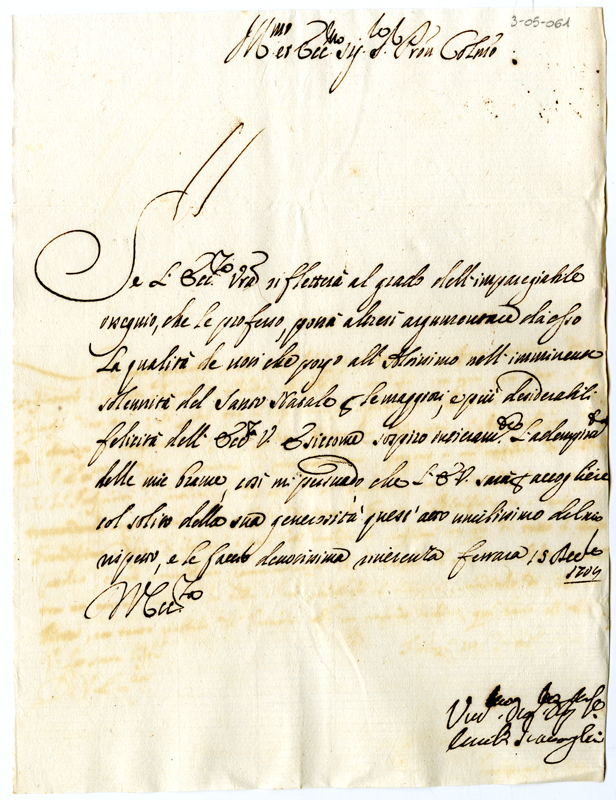 3-05-061
Ill.mo et Ecc.mo Sig.r S.r Pron Col.mo
Se L' Ecc.za V.ra rifletterà al grado dell'impareggiabile
ossequio, che le professo, potrà altresì argumentare da esso
la qualità de voti che porgo all' Altissimo nell' imminente
solennità del Santo Natale p le maggiori, e più desiderabili
felicità dell' Ecc.za V. E siccome sospiro l'adempim.to
delle mie brame, così mi persuado che L' E V. sarà p accogliere
col solito della sua generosità quest' atto umilissimo del mio
rispetto, e le faccio devotissima riverenza Ferrara 15 Decbe
1704